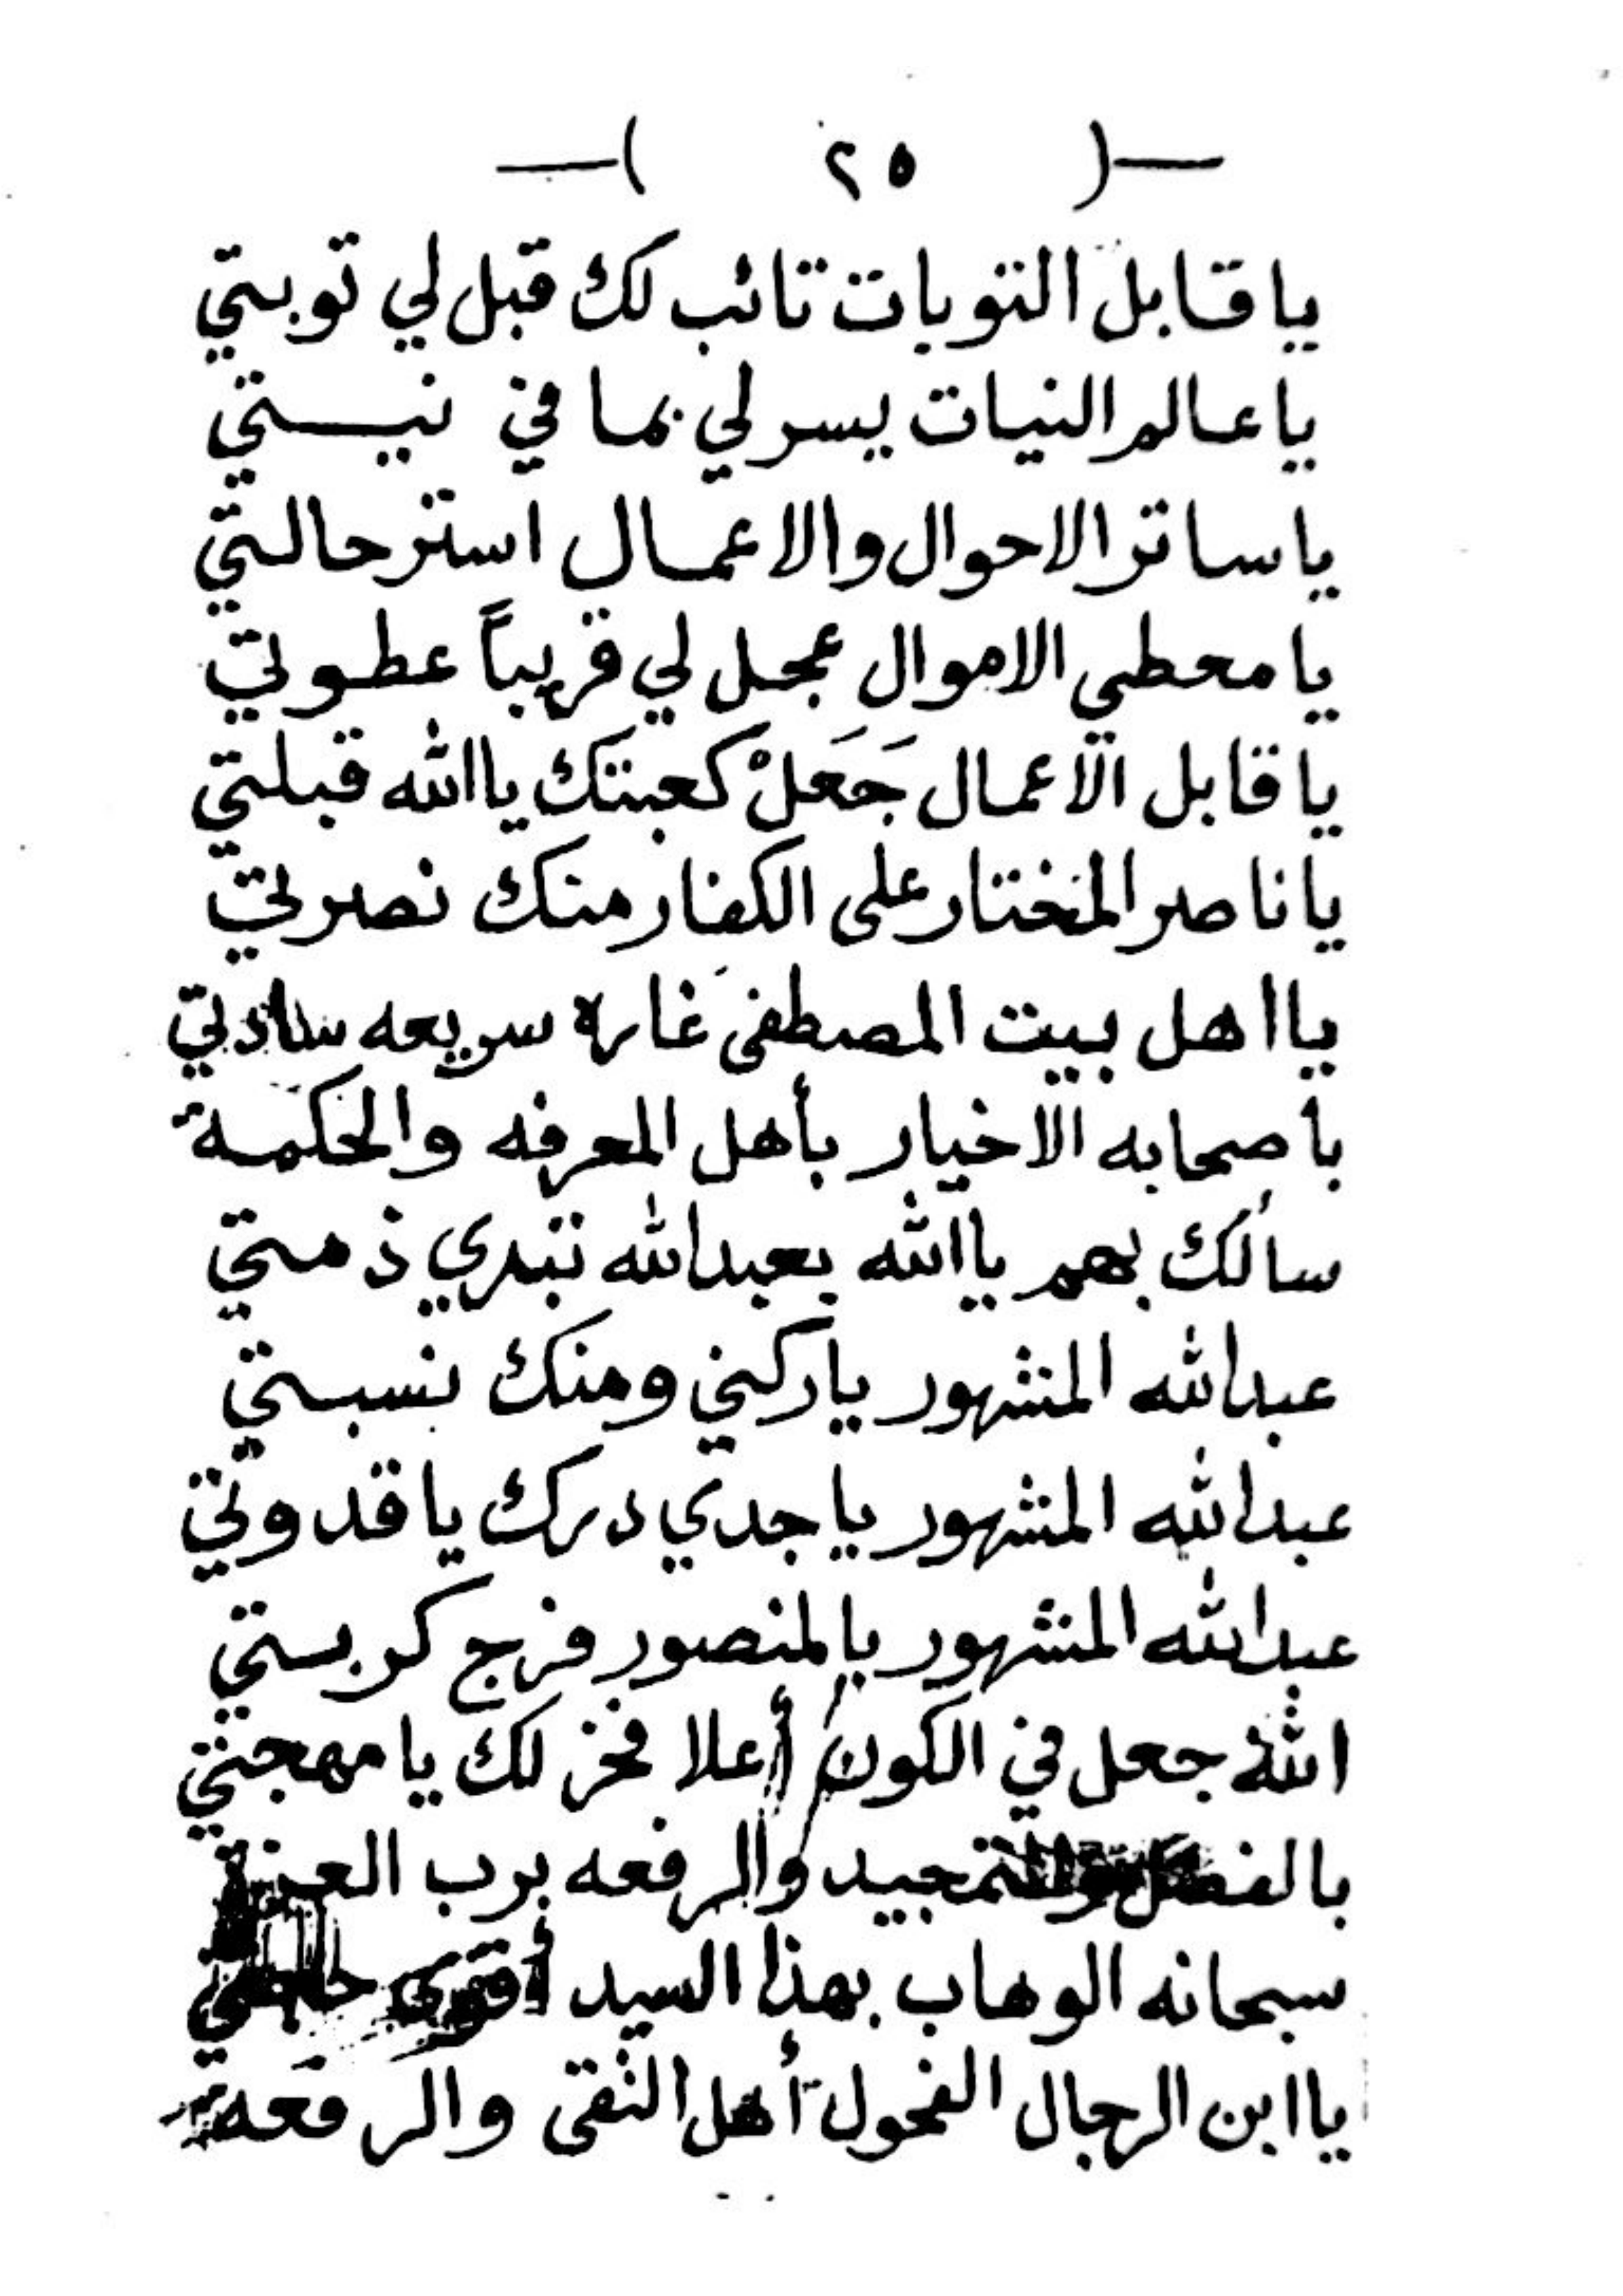 —( ٢٥ )—
يا قابل التوبات تائب لك قبل لي توبتي
يا عالم النيات يسر لي بما في نيتي
يا ساتر الاحوال والاعمال استر حالتي
يا محطي الاموال عجل لي قريباً عطوتي
يا قابل الاعمال جَعَلْ كعبتك يا الله قبلتي
يا ناصر المختار على الكفار منك نصرتي
يا اهل بيت المصطفى غاره سريعه سادتي
باصحابه الاخيار بأهل المعرفه والحكمة
سألك بهم يا الله بعبدالله تبري ذمتي
عبدالله المشهور ياركني ومنك نسبتي
عبدالله المشهور يا جدي درك يا قدوتي
عبدالله المشهور بالمنصور فرج كربتي
الله جعل في الكون أعلا فخر لك يا مهجتي
بالفضل والتمجيد والرفعه برب العزة
سبحانه الوهاب بهذا السيد
يا ابن الرجال الفحول أهل التقى والرفعة